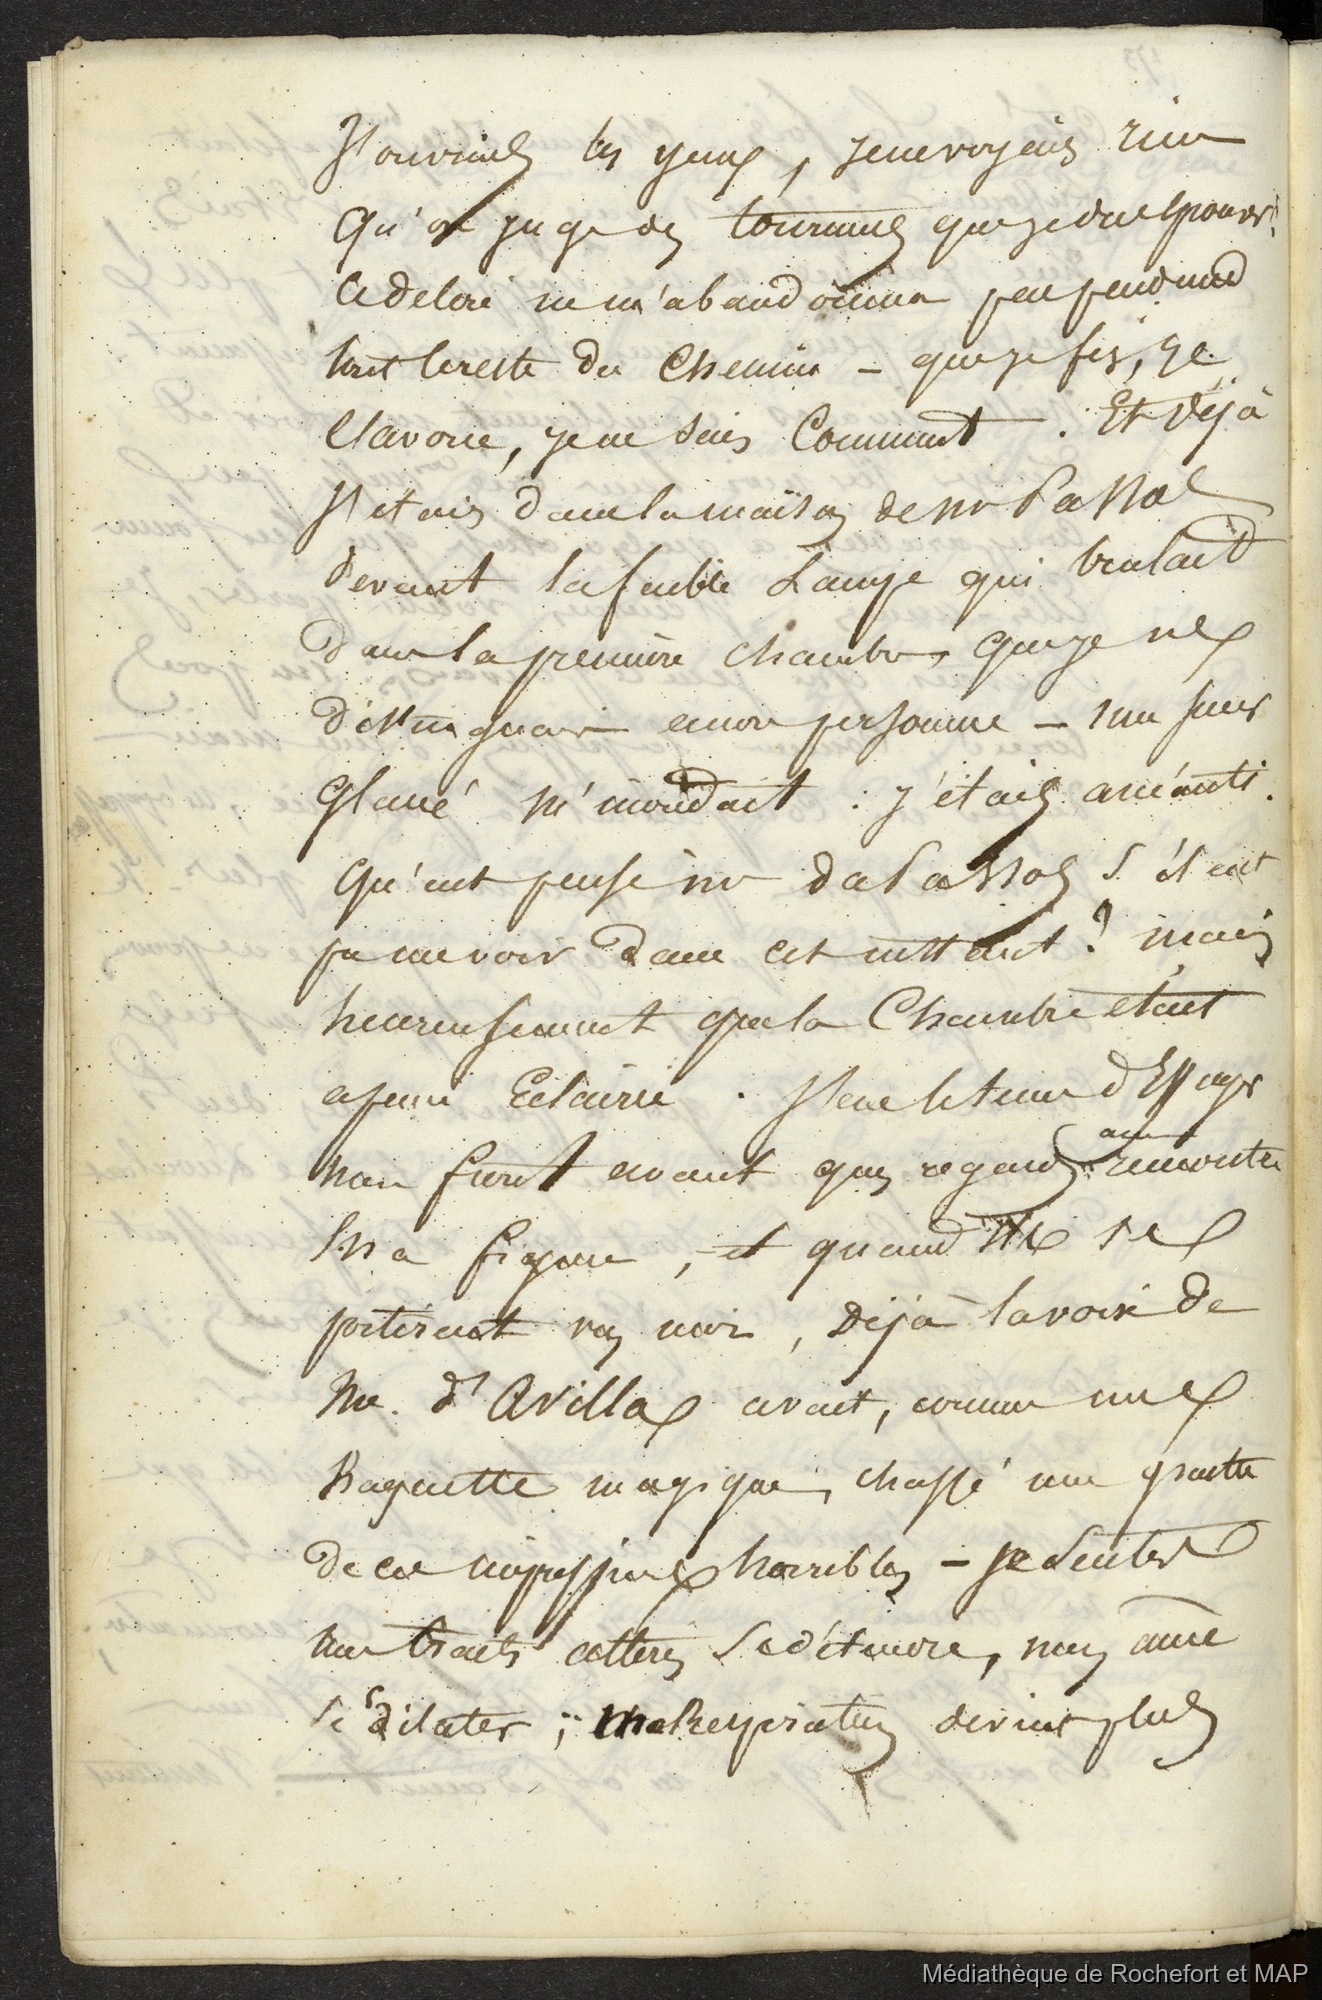 J'ouvrais les yeux, je ne voyais rien
Qu'on juge des tourmens que je dus Épouver!
Ce delire ne m'abandonna pas pendant
tout le reste du Chemin – que je fis, je
l'avoue, je ne sais Comment. Et déjà
J'étais dans la maison de
devant la faible Lampe qui brulait
dans la première chambre, que je ne
distinguais encore personne – une sueur
Glacé m'inondait : j'étais anéanti.
Qu'eut pensé s'il eut
pu me voir dans cet instant ? mais
heureusement que la Chambre était
a peine Eclairée. J'eus le tems d'Essuyer
mon front avant que regards
ma figure, et quand ils se
portèrent sur moi, Déjà la voix de
Me. d'Avilla avait, comme une
Baguette magique, chassé une partie
de ces impressions horribles – je sentis
mes traits altérés se détendre, mon ame
se dilater ; ma Respiration devint plus
Médiathèque de Rochefort et MAP